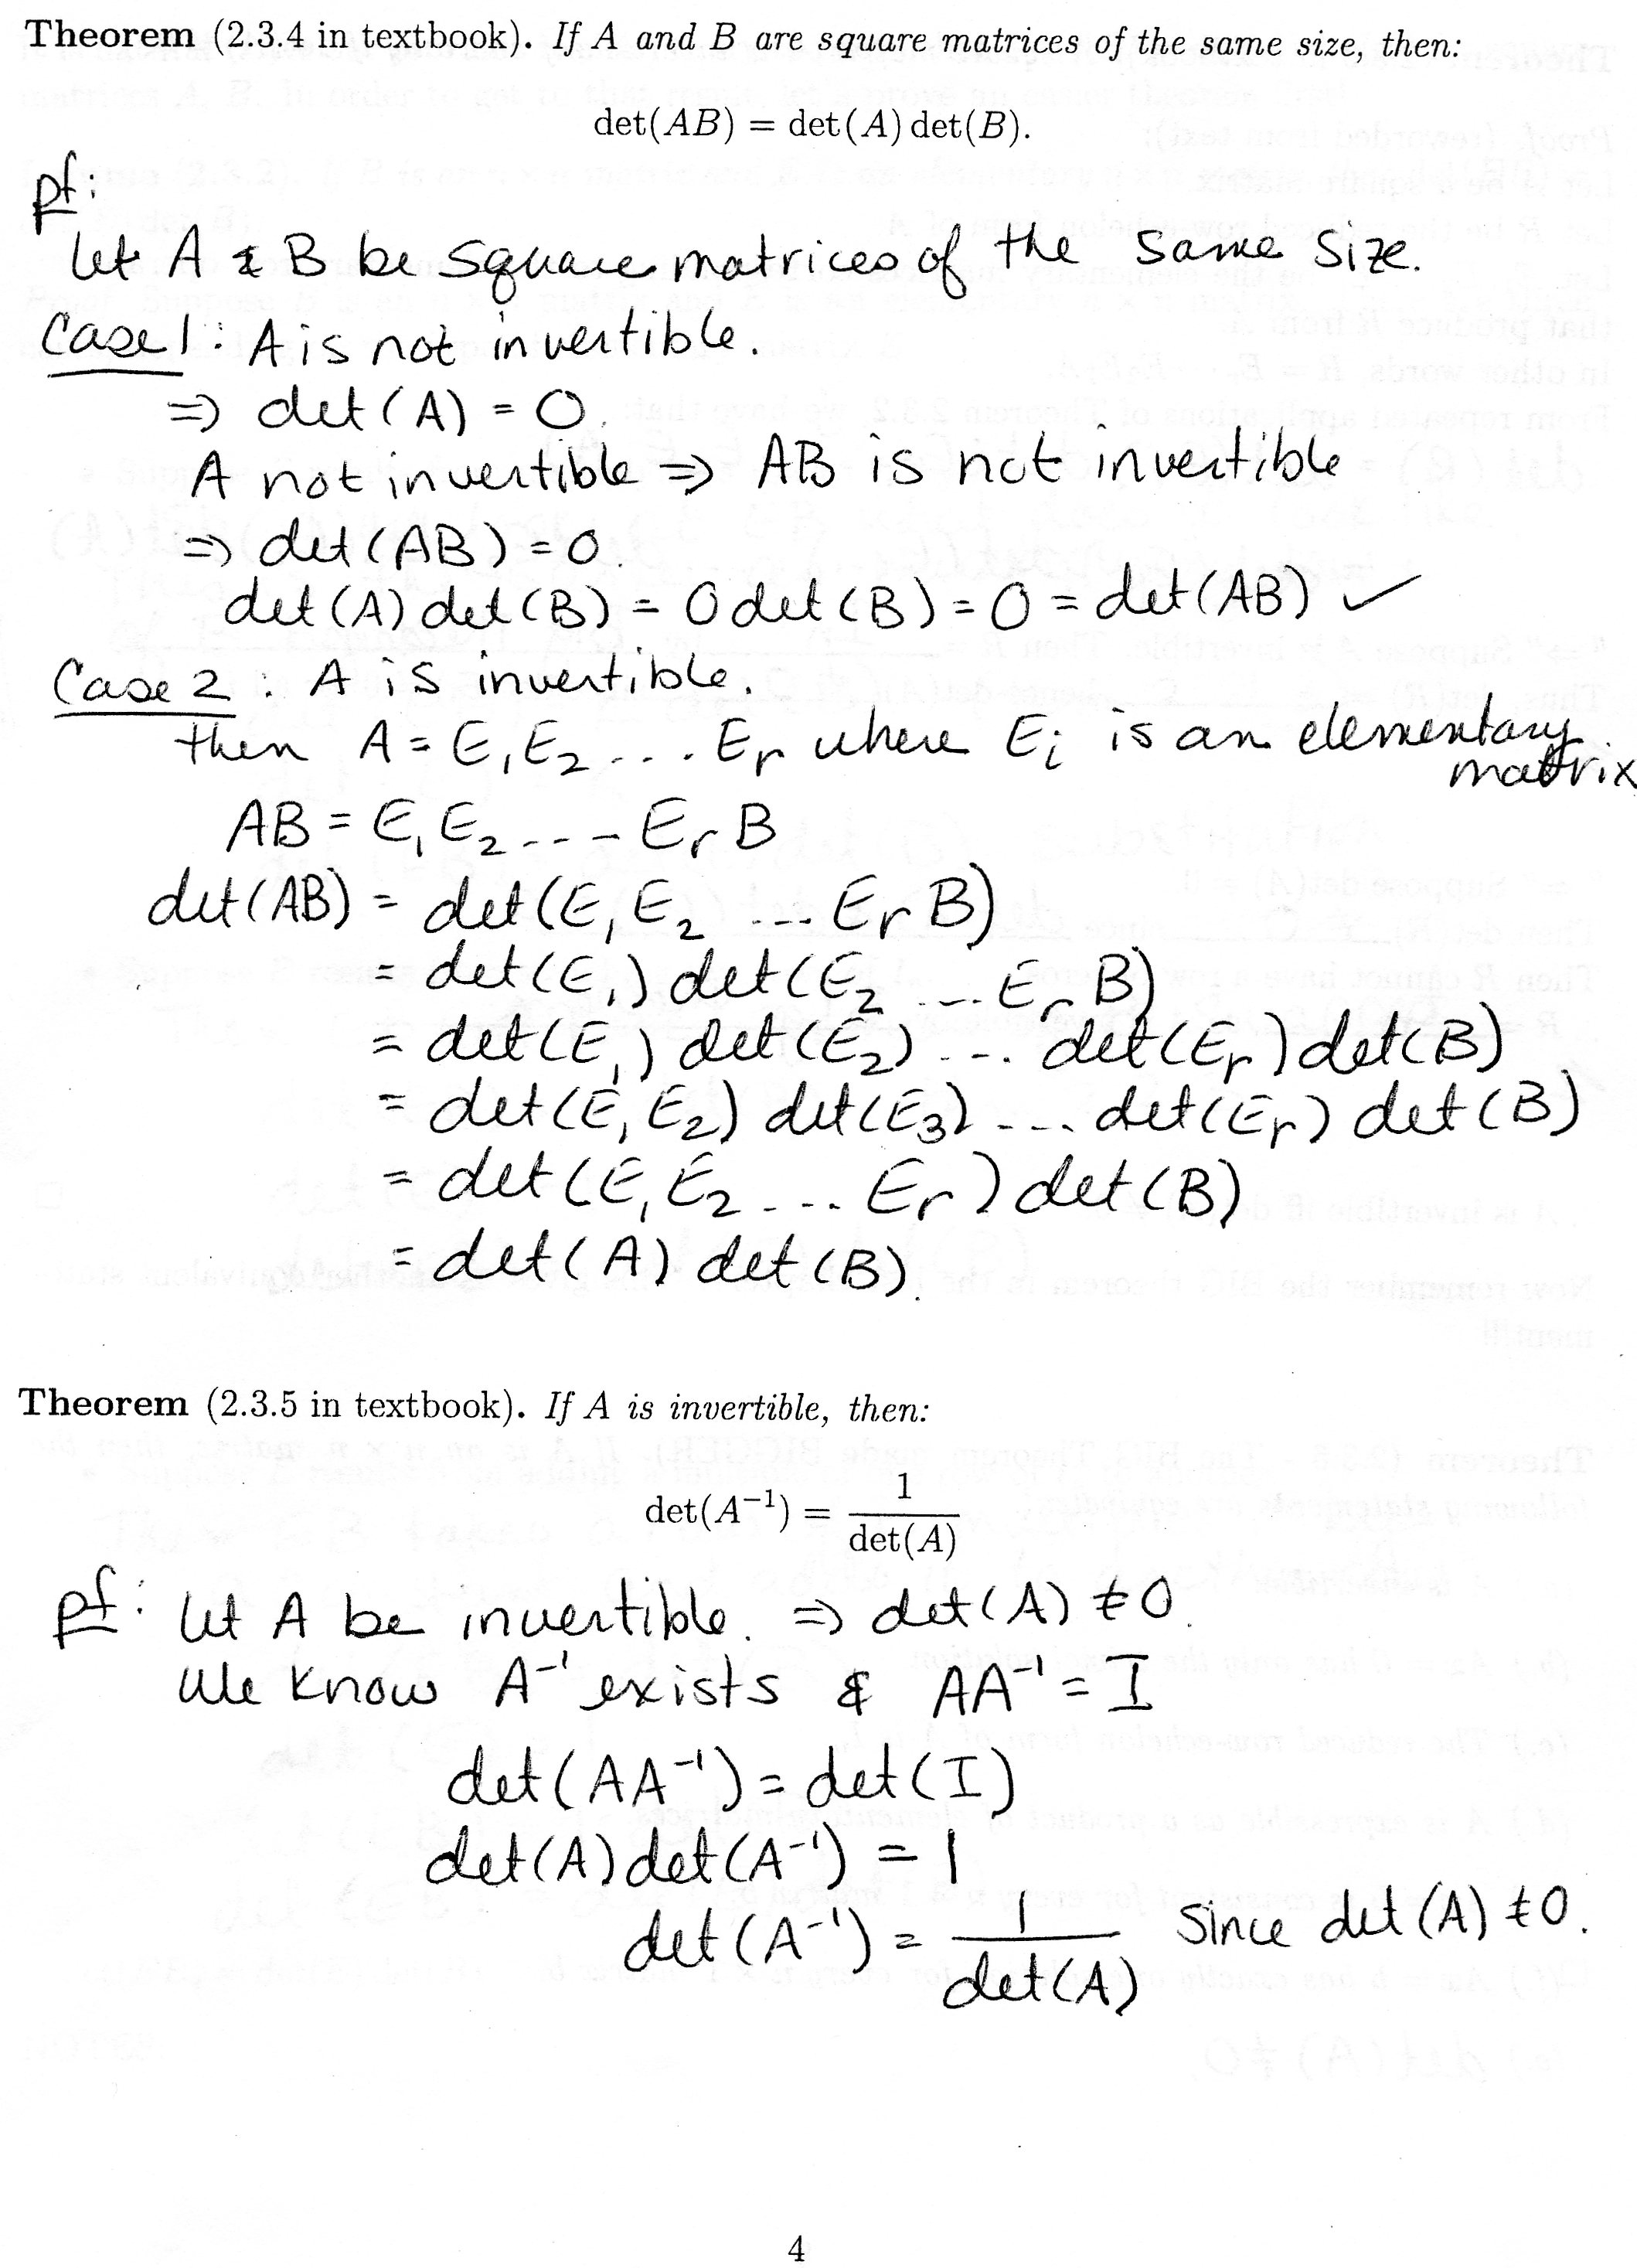 Theorem (2.3.4 in textbook). If A and B are square matrices of the same size, then:
det(AB) = det(A) det(B).
pf:
let A & B be square matrices of the same size.
Case 1: A is not invertible.
⇒ det(A) = 0.
A not invertible ⇒ AB is not invertible
⇒ det(AB) = 0.
det(A) det(B) = 0 det(B) = 0 = det(AB) ✓
Case 2: A is invertible.
then A = E₁E₂ ... Eᵣ where Eᵢ is an elementary
matrix
AB = E₁E₂ ... EᵣB
det(AB) = det(E₁E₂ ... EᵣB)
= det(E₁) det(E₂ ... EᵣB)
= det(E₁) det(E₂) ... det(Eᵣ) det(B)
= det(E₁E₂) det(E₃) ... det(Eᵣ) det(B)
= det(E₁E₂ ... Eᵣ) det(B)
= det(A) det(B).
Theorem (2.3.5 in textbook). If A is invertible, then:
det(A⁻¹) = 1/det(A)
pf: let A be invertible. ⇒ det(A) ≠ 0.
We know A⁻¹ exists & AA⁻¹ = I
det(AA⁻¹) = det(I)
det(A) det(A⁻¹) = 1
det(A⁻¹) = 1/det(A) since det(A) ≠ 0.
4